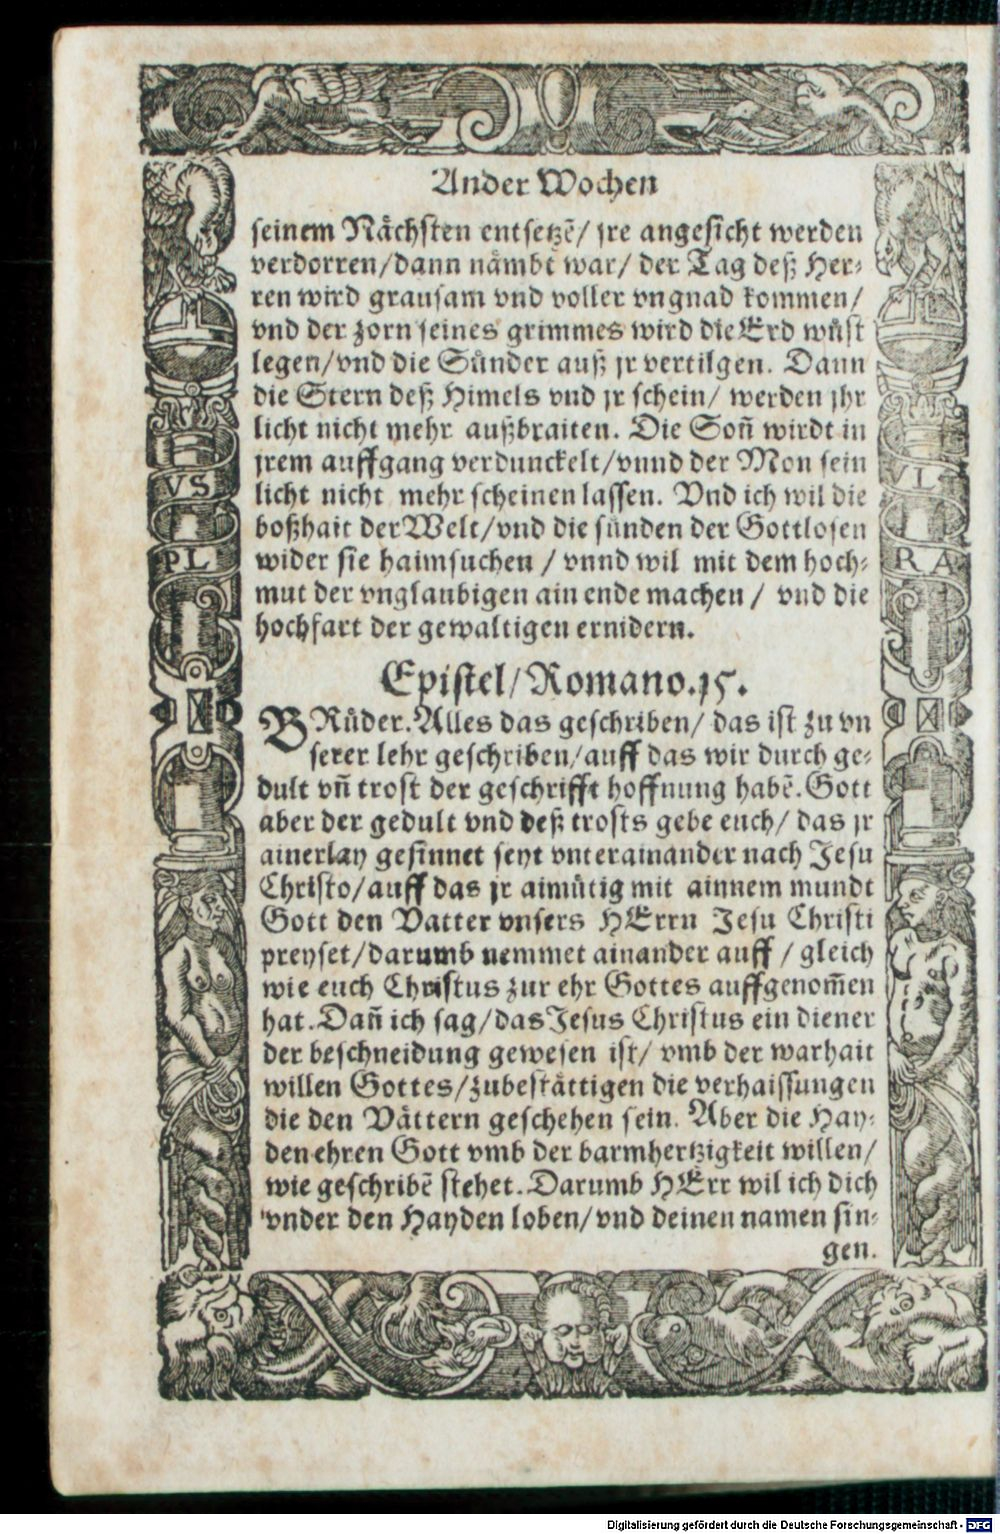 Ander Wochen
seinem Nächsten entsetzē/ jre angesicht werden
verdorren/dann nåmbt war/ der Tag deß Her-
ren wird grausam vnd voller vngnad kommen/
vnd der zorn seines grimmes wird die Erd wůst
legen/vnd die Sůnder auß jr vertilgen. Dann
die Stern deß Himels vnd jr schein/ werden jhr
licht nicht mehr außbraiten. Die Son̄ wirdt in
jrem auffgang verdunckelt/vnnd der Mon sein
licht nicht mehr scheinen lassen. Vnd ich wil die
boßhait der Welt/vnd die sůnden der Gottlosen
wider sie haimsuchen / vnnd wil mit dem hoch-
mut der vnglaubigen ain ende machen / vnd die
hochfart der gewaltigen ernidern.
VS
PL
VL
RA
Epistel/Romano.15.
BRůder. Alles das geschriben/ das ist zu vn
serer lehr geschriben/auff das wir durch ge-
dult vn̄ trost der geschrifft hoffnung habē. Gott
aber der gedult vnd deß trosts gebe euch/ das jr
ainerlay gesinnet seyt vnterainander nach Jesu
Christo/auff das jr aimůtig mit ainnem mundt
Gott den Vatter vnsers HErrn Jesu Christi
preyset/darumb nemmet ainander auff / gleich
wie euch Christus zur ehr Gottes auffgenom̄en
hat. Dan̄ ich sag/das Jesus Christus ein diener
der beschneidung gewesen ist/ vmb der warhait
willen Gottes/zubeståttigen die verhaissungen
die den Våttern geschehen sein. Aber die Hay-
den ehren Gott vmb der barmhertzigkeit willen/
wie geschribē stehet. Darumb HErr wil ich dich
vnder den Hayden loben/vnd deinen namen sin-
gen.
Digitalisierung gefördert durch die Deutsche Forschungsgemeinschaft - DFG